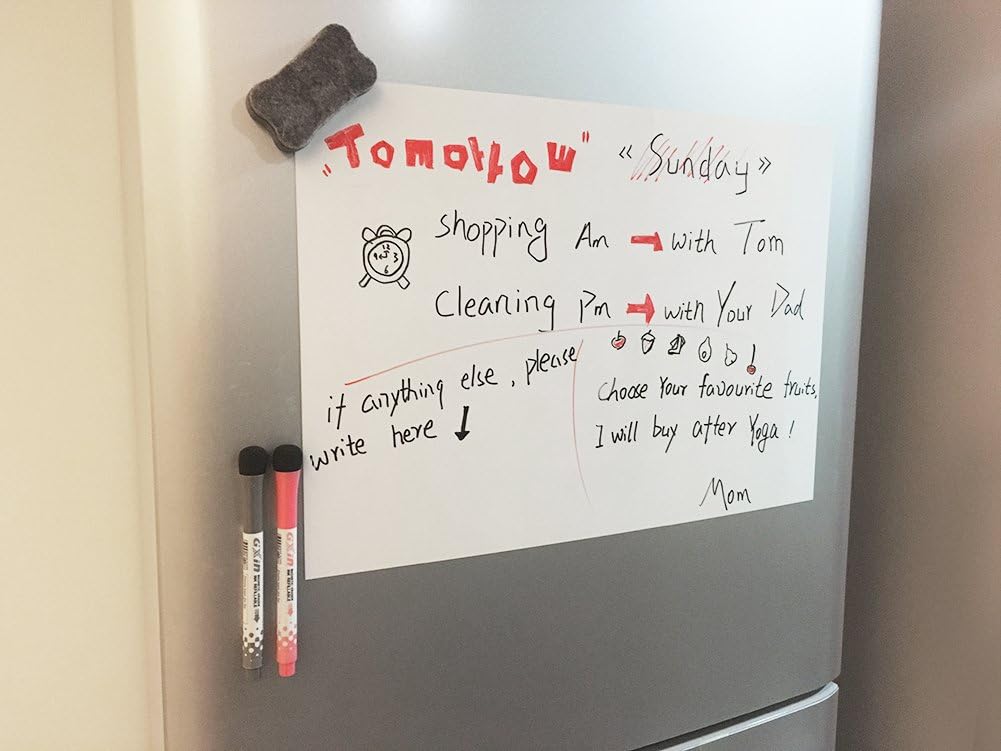 "Tomorrow" “Sunday”
shopping Am → with Tom
12
9 3
6
Cleaning Pm → with Your Dad
if anything else, please
write here ↓
Choose Your favourite fruits,
I will buy after Yoga!
Mom
GXin
GXin